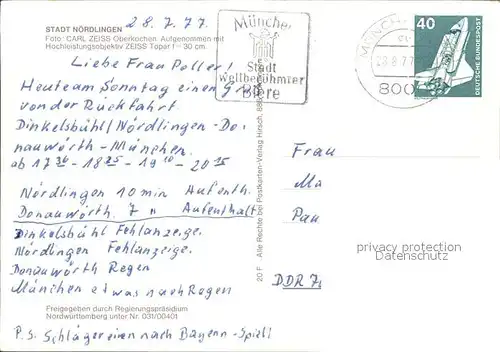 28.7.77
STADT NÖRDLINGEN
Foto: CARL ZEISS Oberkochen. Aufgenommen mit
Hochleistungsobjektiv ZEISS Topar f = 30 cm.
Liebe Frau Poller!
Heute am Sonntag einen Gruß
von der Rückfahrt
Dinkelsbühl/Nördlingen-Do-
nauwörth-München.
ab 17 - 18 25 - 19 10 - 20 15
Nördlingen 10 min Aufenth.
Donauwörth. 7 " Aufenthalt
Dinkelsbühl Fehlanzeige.
Nördlingen Fehlanzeige.
Donauwörth Regen
München etwas nach Regen
Freigegeben durch Regierungspräsidium
Nordwürttemberg unter Nr. 031/00401
P.S. Schlägereien nach Bayern-Spiel!
20 F Alle Rechte bei Postkarten-Verlag Hirsch,
München
Stadt
weltberühmter
Biere
MÜNCH
800
40
DEUTSCHE BUNDESPOST
Frau
Ma
Pau
DDR 7
privacy protection
Datenschutz